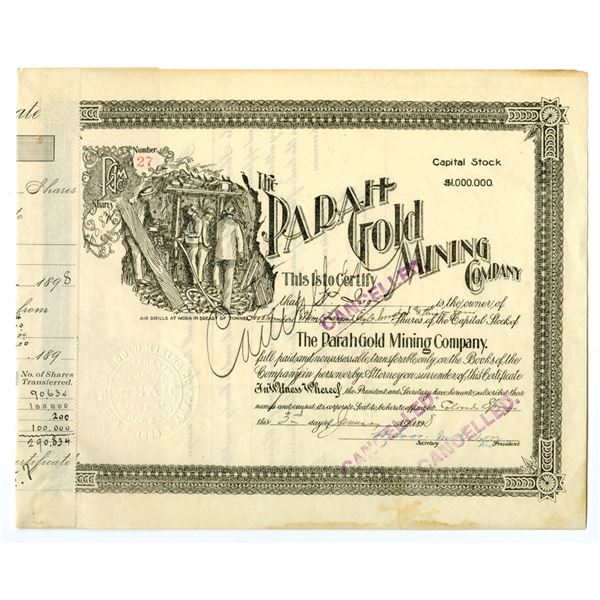 Number
27
PGM
Shares
The
PARAH
Gold
MINING
COMPANY
Capital Stock
$1,000,000.
AIR DRILLS AT WORK IN BREAST OF TUNNEL
This is to Certify
that is the owner of
Shares of the Capital Stock of
The Parah Gold Mining Company.
full paid and non assessable, transferable only on the Books of the
Company in person or by Attorney on surrender of this Certificate
In Witness Whereof, the President and Secretary have hereunto subscribed their
names and caused its corporate Seal to be hereto affixed at Colorado
this 3 day of January 189
Secretary President
CANCELLED.
CANCELLED.
CANCELLED.
Shares
1898
from
189
No. of Shares
Transferred.
90634
100,000
200
100,000
290,834
Certificate